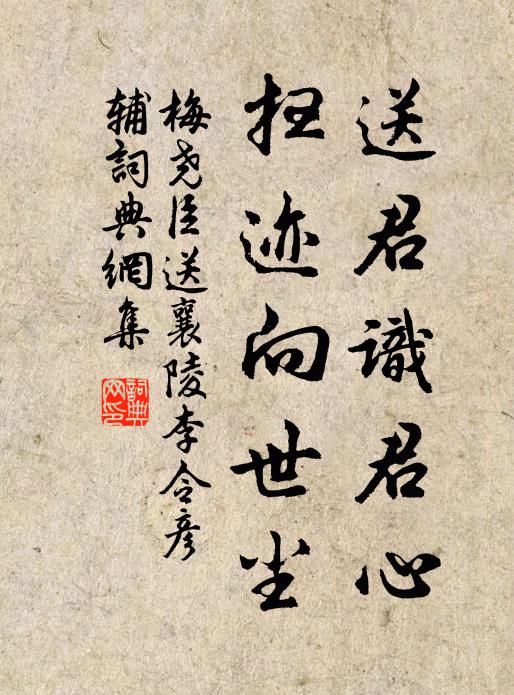 送君識君心
扫迹向世尘
梅尧臣送襄陵李令彦
辅詞典網集
詞典
网印